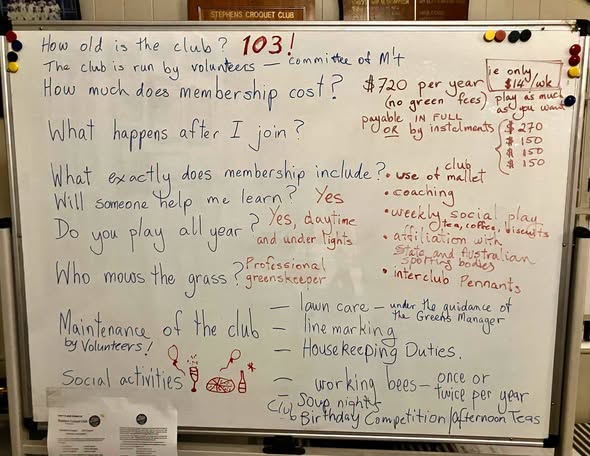 STEPHENS CROQUET CLUB
How old is the club? 103!
The club is run by volunteers — committee of M't
How much does membership cost?
$720 per year
(no green fees)
payable IN FULL
OR by instalments
ie only
$14/wk
play as much
as you want
$270
$150
$150
$150
What happens after I join?
What exactly does membership include?
• use of club mallet
• coaching
• weekly social play
tea, coffee, biscuits
• affiliation with
State and Australian
sporting bodies
• interclub Pennants
Will someone help me learn? Yes
Do you play all year? Yes, daytime
and under lights
Who mows the grass? Professional
greenskeeper
Maintenance of the club
by Volunteers!
— lawn care — under the guidance of
the Greens Manager
— line marking
— Housekeeping Duties.
Social activities
— working bees — once or
twice per year
— Soup nights
Club Birthday Competition/Afternoon Teas